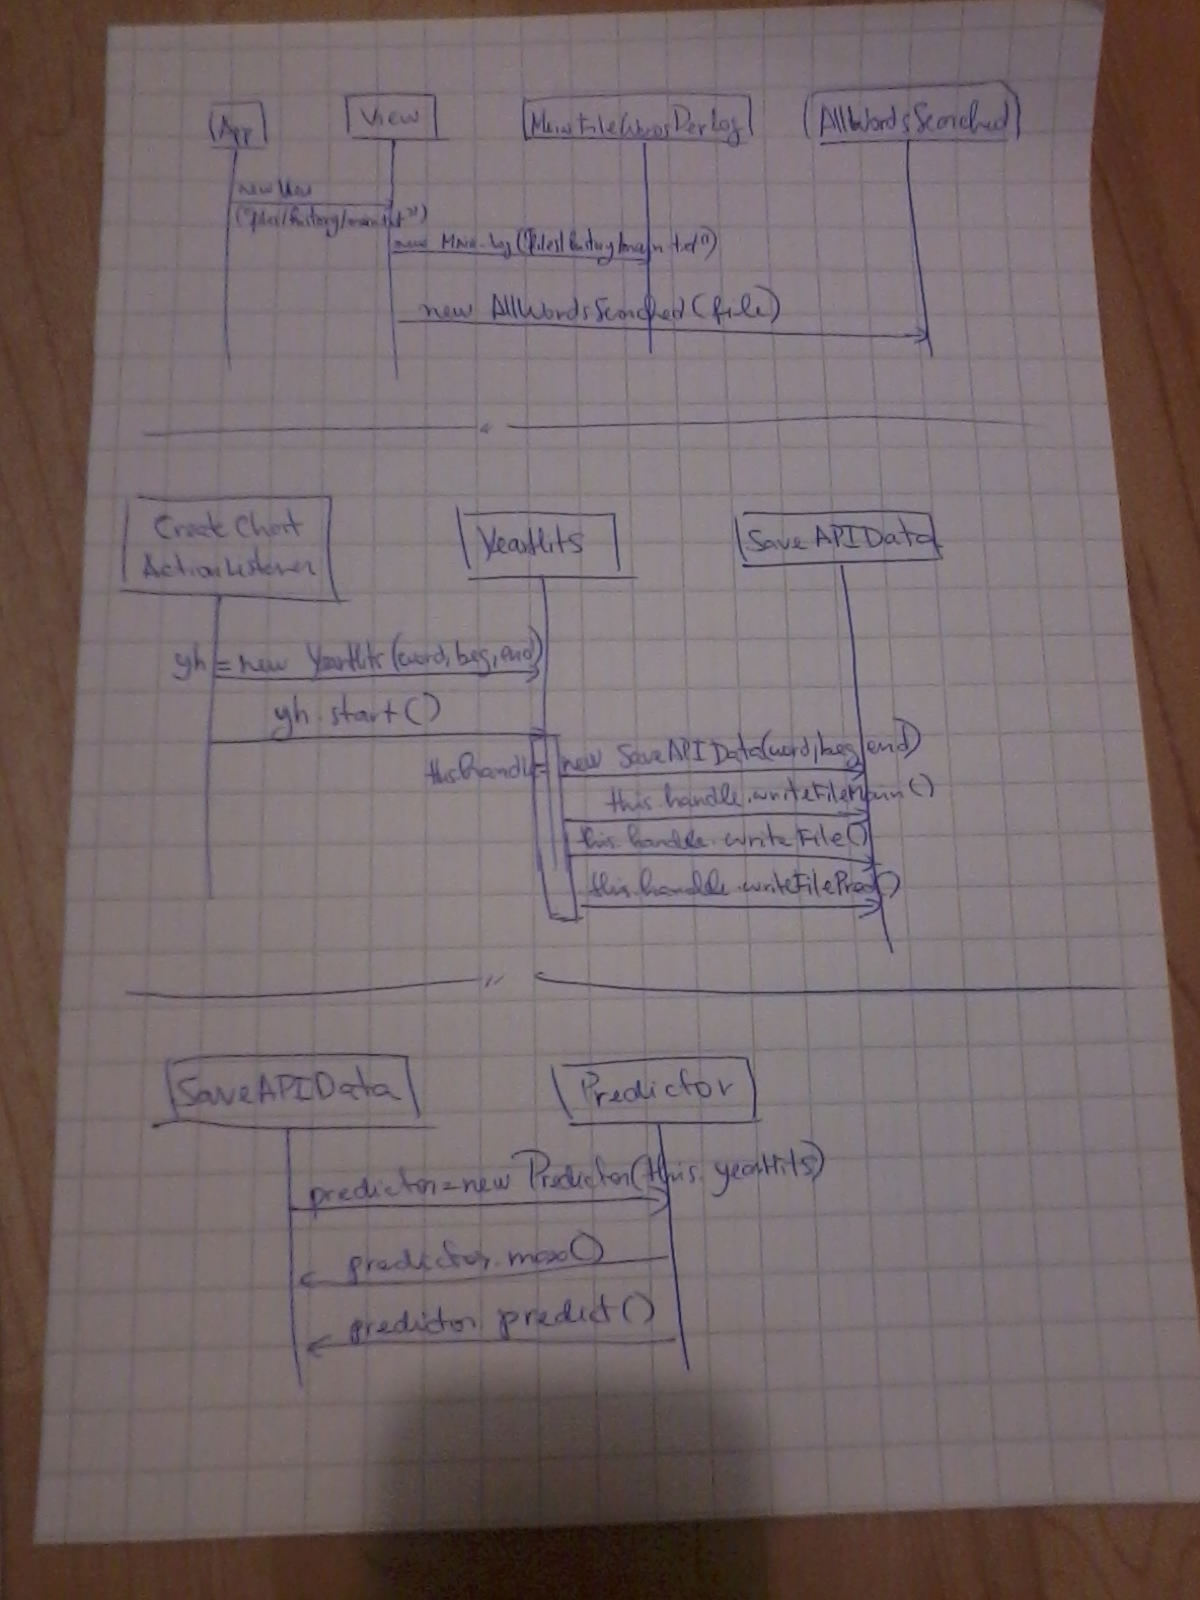 App
View
AllWordsSearched
new View
("files/history/main.txt")
new Main..Log("files/history/main.txt")
new AllWordsSearched(file)
Create Chart
ActionListener
YearHits
SaveAPIData
yh = new YearHits(word, beg, end)
yh.start()
this.handle = new SaveAPIData(word, beg, end)
this.handle.writeFileMain()
this.handle.writeFile()
this.handle.writeFilePred()
SaveAPIData
Predictor
predictor = new Predictor(this.yearHits)
predictor.max()
predictor.predict()